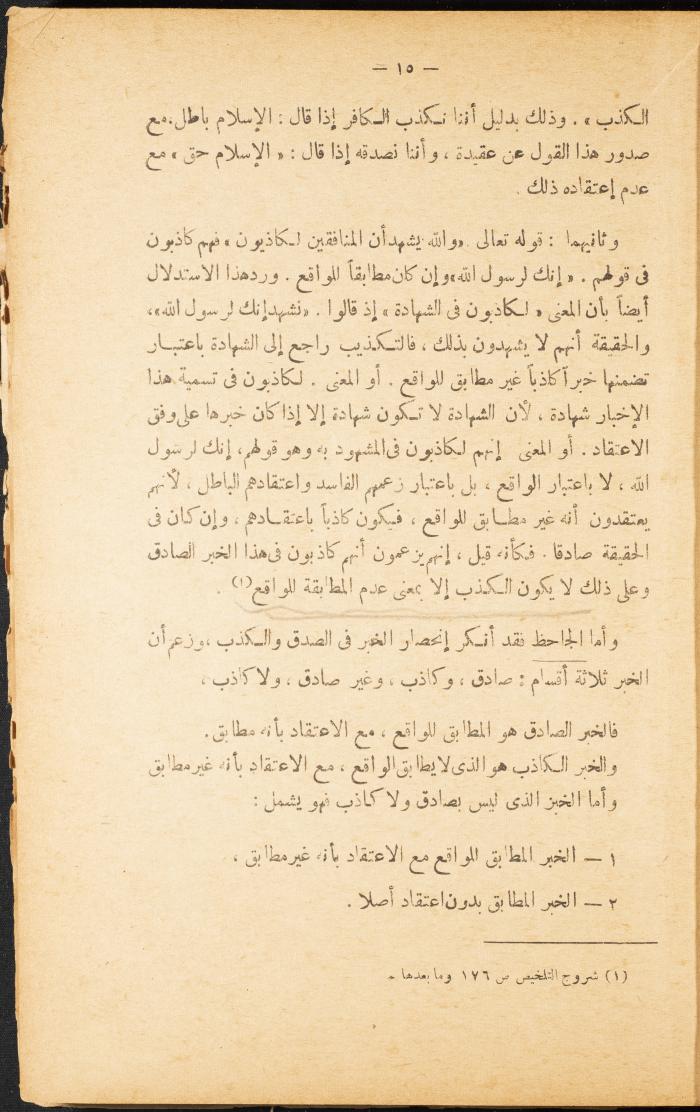 — ١٥ —
الكذب » . وذلك بدليل أننا نكذب الكافر إذا قال : الإسلام باطل، مع
صدور هذا القول عن عقيدة ، وأننا نصدقه إذا قال : « الإسلام حق » مع
عدم إعتقاده ذلك .
وثانيهما : قوله تعالى «والله يشهد أن المنافقين لكاذبون » فهم كاذبون
فى قولهم . « إنك لرسول الله» وإن كان مطابقاً للواقع . ورد هذا الاستدلال
أيضاً بأن المعنى « لكاذبون فى الشهادة » إذ قالوا . «نشهد إنك لرسول الله»،
والحقيقة أنهم لا يشهدون بذلك ، فالتكذيب راجع إلى الشهادة باعتبار
تضمنها خبراً كاذباً غير مطابق للواقع . أو المعنى . لكاذبون فى تسمية هذا
الإخبار شهادة ، لأن الشهادة لا تكون شهادة إلا إذا كان خبرها على وفق
الاعتقاد . أو المعنى إنهم لكاذبون فى المشهود به وهو قولهم، إنك لرسول
الله ، لا باعتبار الواقع ، بل باعتبار زعمهم الفاسد واعتقادهم الباطل ، لأنهم
يعتقدون أنه غير مطابق للواقع ، فيكون كاذباً باعتقادهم ، وإن كان فى
الحقيقة صادقا . فكأنه قيل ، إنهم يزعمون أنهم كاذبون فى هذا الخبر الصادق
وعلى ذلك لا يكون الكذب إلا بمعنى عدم المطابقة للواقع(١) .
وأما الجاحظ فقد أنكر إنحصار الخبر فى الصدق والكذب ،وزعم أن
الخبر ثلاثة أقسام : صادق ، وكاذب ، وغير صادق ، ولا كاذب ،
فالخبر الصادق هو المطابق للواقع ، مع الاعتقاد بأنه مطابق.
والخبر الكاذب هو الذى لا يطابق الواقع ، مع الاعتقاد بأنه غير مطابق
وأما الخبر الذى ليس بصادق ولا كاذب فهو يشمل :
١ — الخبر المطابق للواقع مع الاعتقاد بأنه غير مطابق ،
٢ — الخبر المطابق بدون اعتقاد أصلا .
(١) شروح التلخيص ص ١٧٦ وما بعدها .